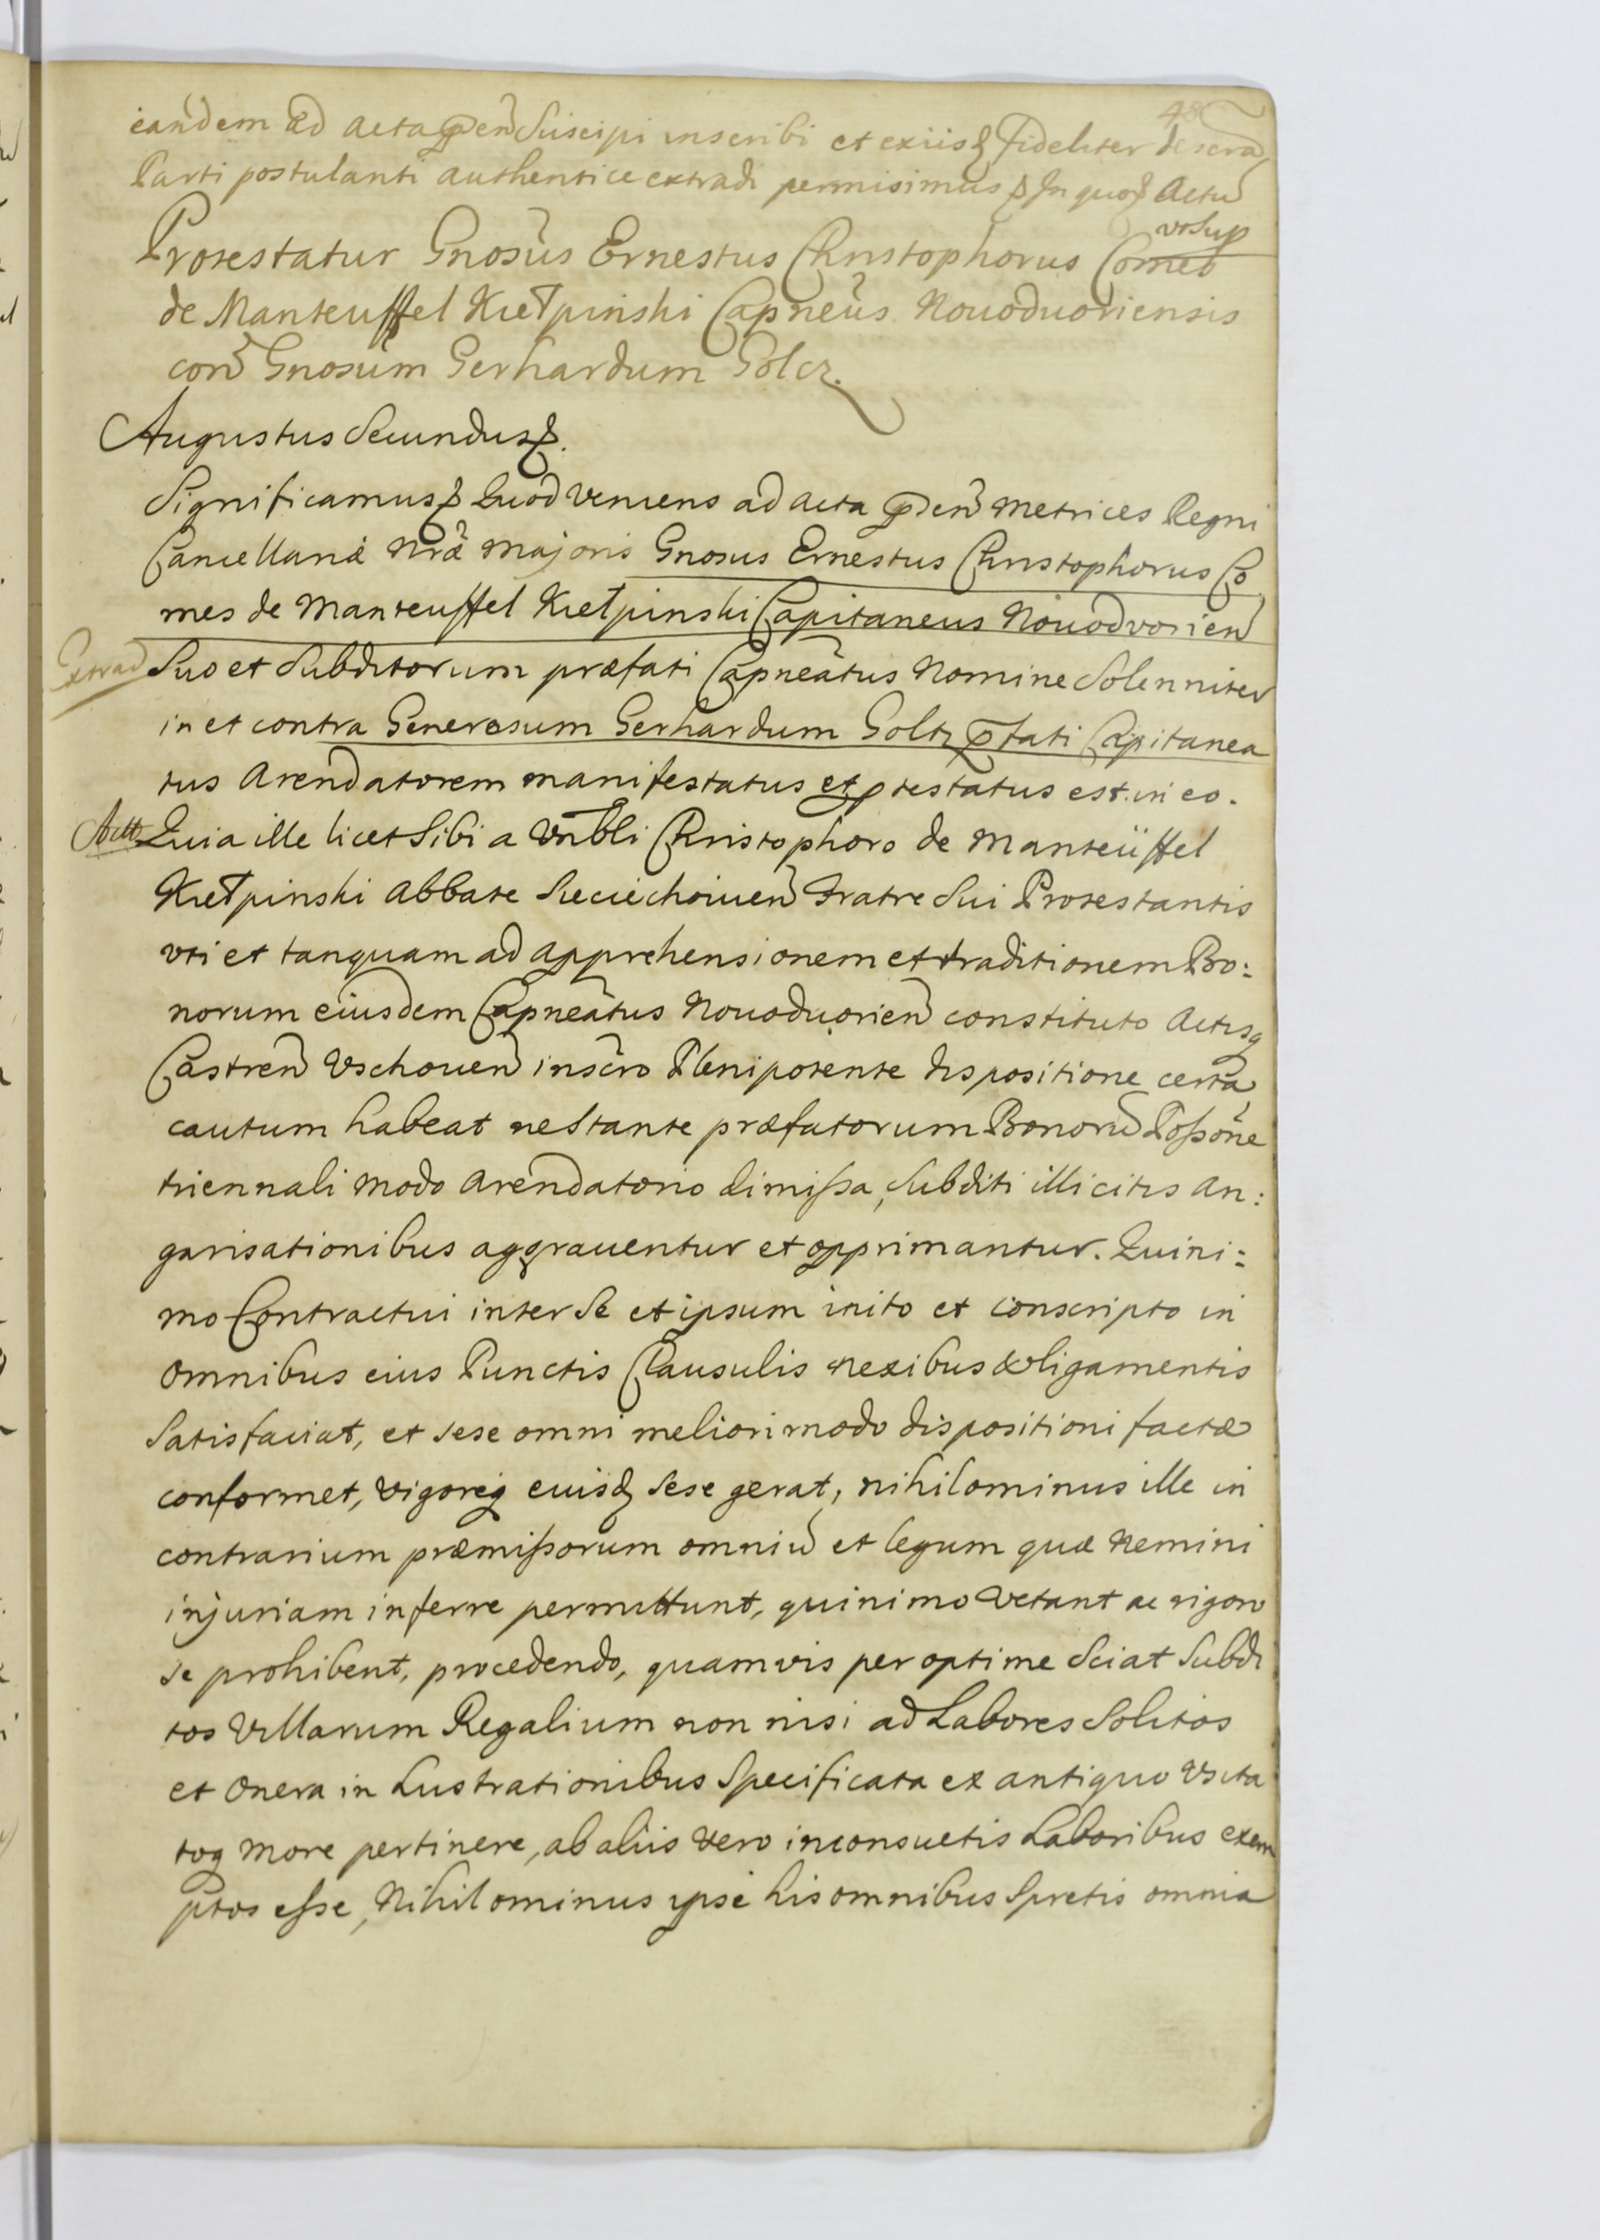 48
eandem ad acta p̄en̄ Suscipi inscribi et ex iisq fideliter descrā
Parti postulanti authentice extradi permisimus In quor Actū
vt Sup
Protestatur Gnosūs Ernestus Christophorus Comes
de Manteuffel Kiełpinski Capneūs Nouoduoriensis
con̄ Gnosūm Gerhardum Golcz.
Augustus Secundus.
Significamus Quod Veniens ad acta p̄en̄ Metrices Regni
Cancellariæ Nræ Majoris Gnosus Ernestus Christophorus Co
mes de Manteuffel Kiełpinski Capitaneus Nouodvorien̄
Extrad
Suo et Subditorum præfati Capneātus Nomine Solenniter
in et contra Generosum Gerhardum Goltz p̄fati Capitanea
tus Arendatorem manifestatus et ptestatus est. in eo.
Actt
Quia ille licet Sibi a Vn̄bli Christophoro de Manteüffel
Kiełpinski Abbate Sieciechouien̄ Fratre Sui Protestantis
vti et tanquam ad apprehensionem et traditionem Bo:
norum eiusdem Capneātus Nouoduorien̄ constituto Actisq
Castren̄ Vschouen̄ inscr̄o Plenipotente dispositione certa
cautum habeat ne Stante præfatorum Bonorū Possōne
triennali modo Arendatorio dimissa, Subditi illicitis an:
garisationibus aggrauentur et opprimantur. Quini:
mo Contractui inter Se et ipsum inito et conscripto in
omnibus eius Punctis Clausulis nexibus & ligamentis
Satisfaciat, et sese omni meliori modo dispositioni factæ
conformet, vigoreq euisd Sese gerat, nihilominus ille in
contrarium præmissorum omniū et legum quæ Nemini
injuriam inferre permittunt, quinimo vetant ac rigoro
se prohibent, procedendo, quamvis per optime Sciat Subdi
tos Villarum Regalium non nisi ad Labores Solitos
et Onera in Lustrationibus Specificata ex antiquo Vsita
toq more pertinere, ab aliis vero inconsuetis Laboribus exem
ptos esse, Nihilominus ipse his omnibus Spretis omnia